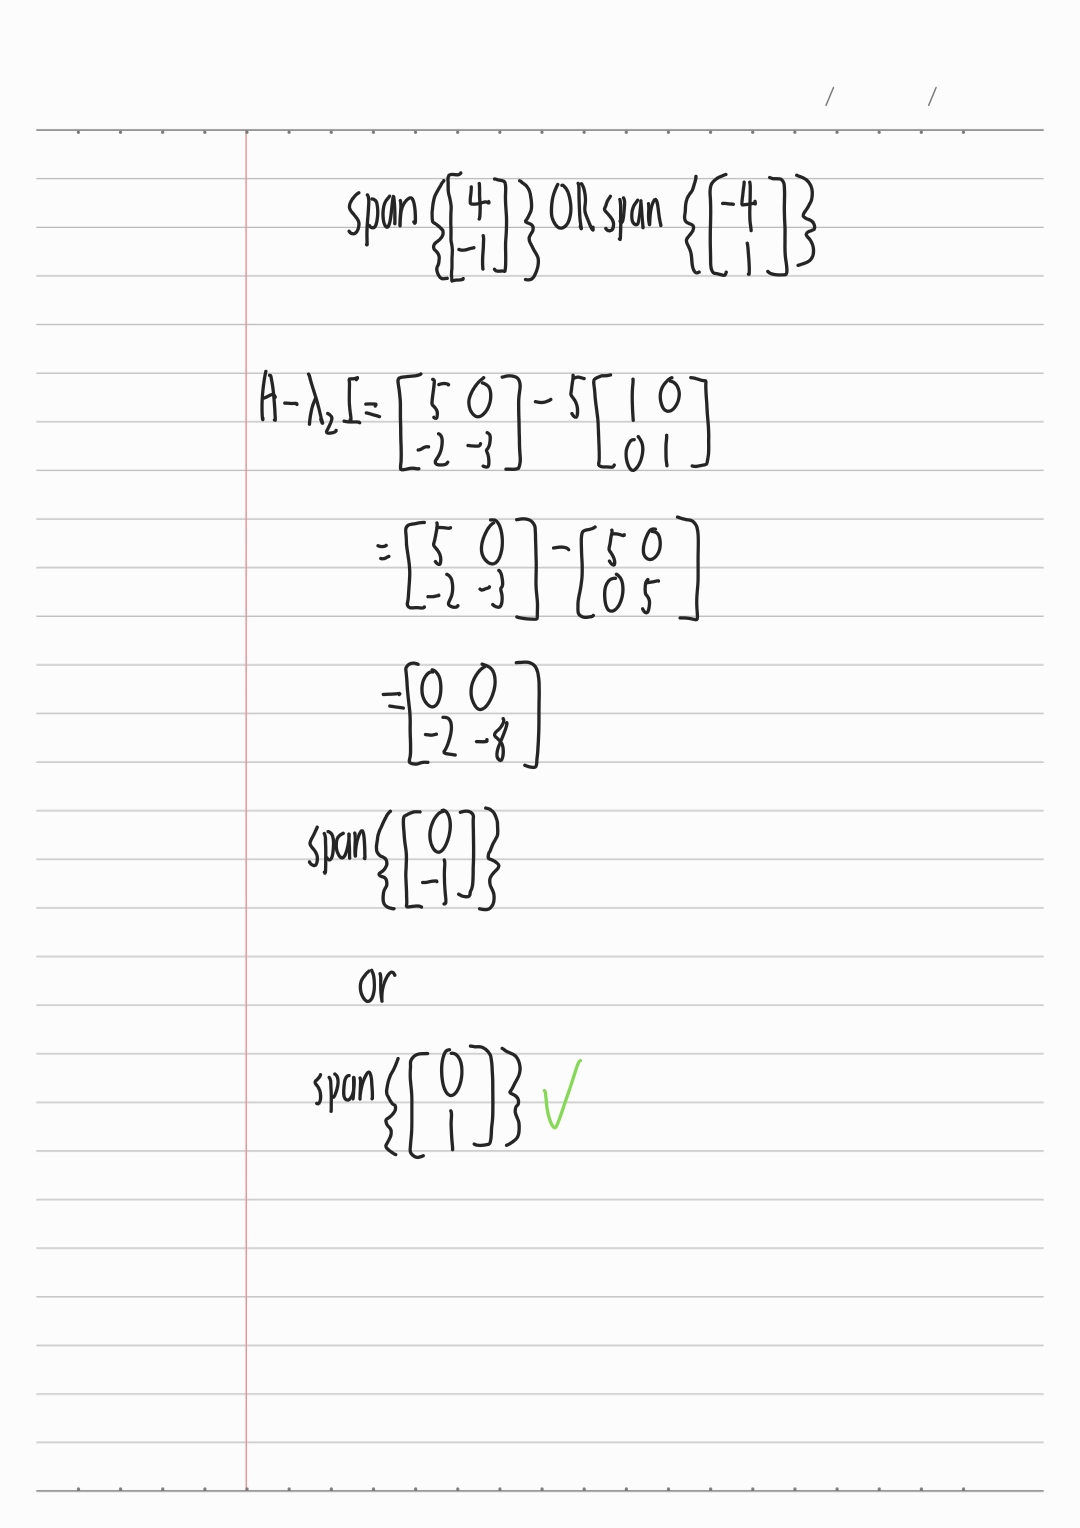 span {[4 -1]} OR span {[-4 1]}
A - λ₂I = [5 0; -2 -3] - 5 [1 0; 0 1]
= [5 0; -2 -3] - [5 0; 0 5]
= [0 0; -2 -8]
span {[0 -1]}
or
span {[0 1]} ✓